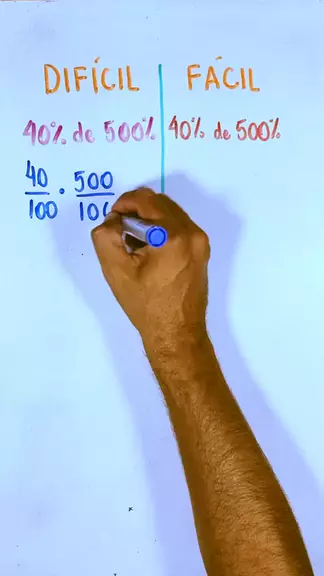 DIFÍCIL FÁCIL
40% de 500% 40% de 500%
40/100 . 500/100